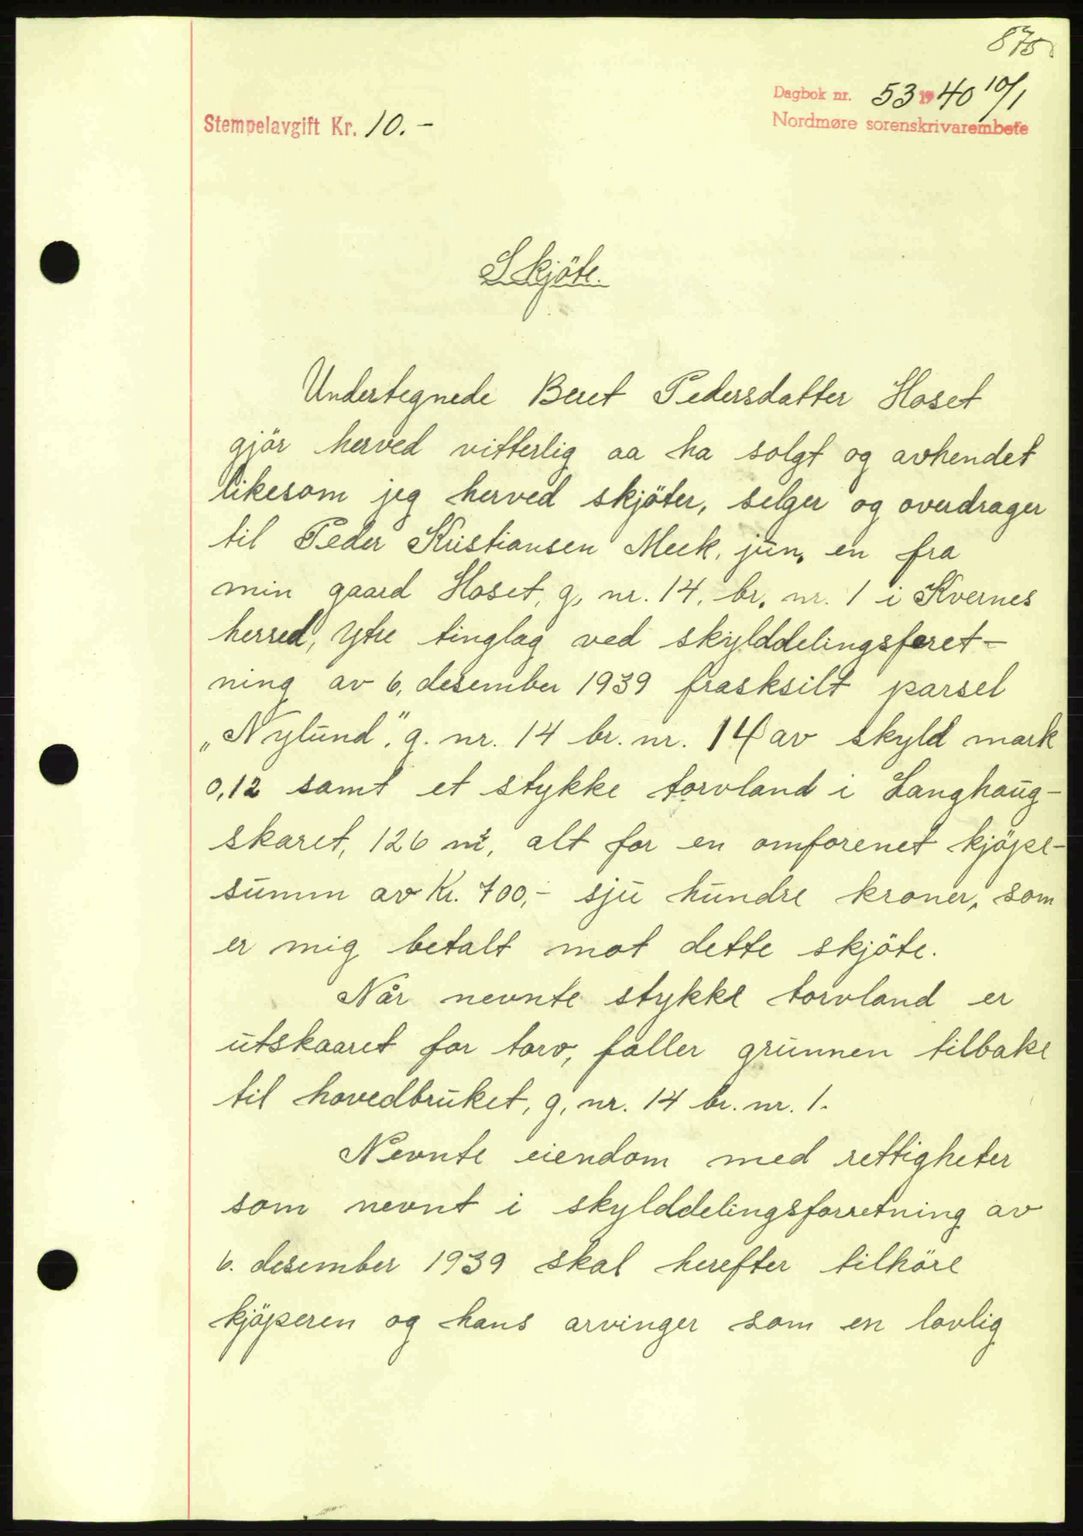 875
Dagbok nr. 53 1940 10/1
Stempelavgift Kr. 10.-
Nordmøre sorenskrivarembete
Skjöte.
Undertegnede Beret Pedersdatter Hoset
gjör herved vitterlig aa ha solgt og avhendet
likesom jeg herved skjöter, selger og overdrager
til Peder Kristiansen Meek, jun. en fra
min gaard Hoset, g. nr. 14, br. nr. 1 i Kvernes
herred, Ytre tinglag ved skylddelingsforet-
ning av 6. desember 1939 frasksilt parsel
„Nylund". g. nr. 14 br. nr. 14 av skyld mark
0,12 samt et stykke torvland i Langhaug-
skaret, 126 m², alt for en omforenet kjöpe-
summ av Kr. 700,- sju hundre kroner, som
er mig betalt mot dette skjöte.
Når nevnte stykke torvland er
utskaaret for torv, faller grunnen tilbake
til hovedbruket, g. nr. 14 br. nr. 1.
Nevnte eiendom med rettigheter
som nevnt i skylddelingsforretning av
6. desember 1939 skal herefter tilhöre
kjöperen og hans arvinger som en lovlig